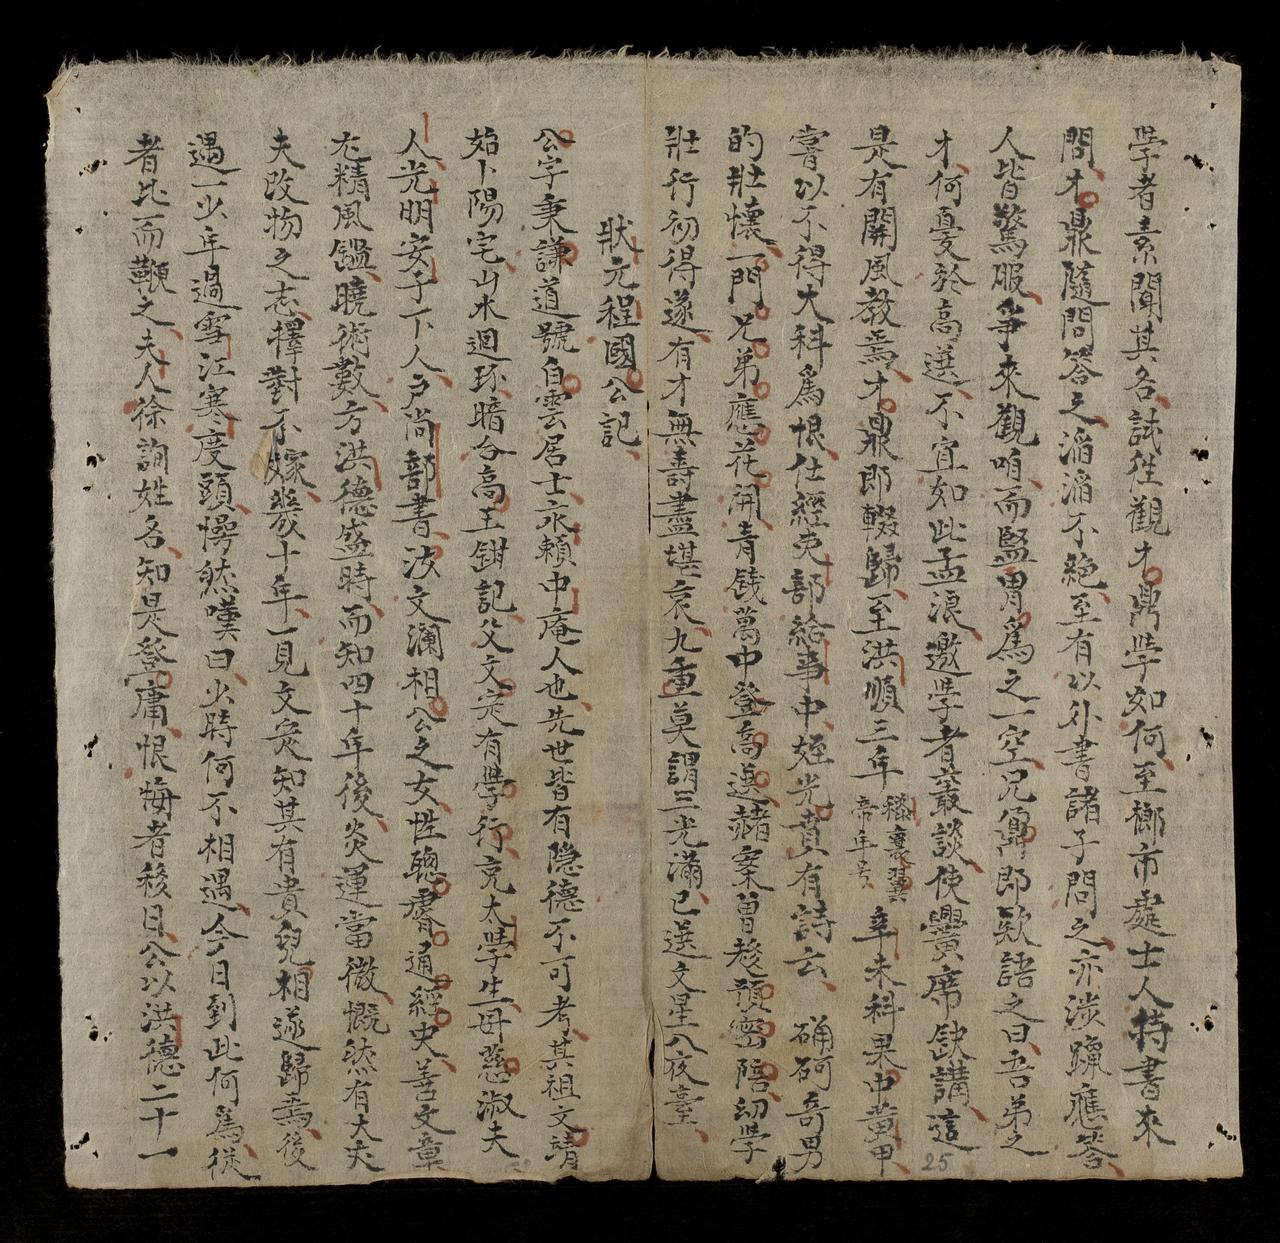 學者素聞其名試徃觀才鼎學如何至鄉市處士人持書來
問才鼎隨問答之滔滔不絕至有以外書諸子問之亦涉躐應答
人皆驚服爭來觀咱而堅胃爲之一空兄鼐即欵語之曰吾弟之
才何憂於高選不宜如此孟浪邀學者叢談使黌席缺講這
是有關風教焉才鼎即輟歸至洪順三年襄翼帝年号辛未科果中黃甲
嘗以不得大科爲恨仕經吏部給事中姪光賁有詩云 硧砢奇男
的壯懷一門兄弟應花開青錢萬中登高選赭案曽趍預密陪幼學
壯行初得遂有才無壽盡堪哀九重莫謂三光滿已選文星八夜臺
狀元程國公記
公字秉謙道號白雲居士永賴中庵人也先世皆有隐德不可考其祖文靖
始卜陽宅山水迴环暗合高王鉗記父文定有學行克太學生毋慈淑夫
人光明安子下人戶尚部書汝文瀾相公之女性聰睿通經史善文章
尤精風鑑曉術數方洪德盛時而知四十年後炎運當微慨然有大夫
夫改物之志擇對不嫁幾十年一見文定知其有貴兒相遂歸焉後
遇一少年過雪江寒度頭愕然嘆曰少時何不相遇今日到此何爲從
者叱而鞭之夫人徐詢姓名知是登庸恨悔者移日公以洪德二十一
25